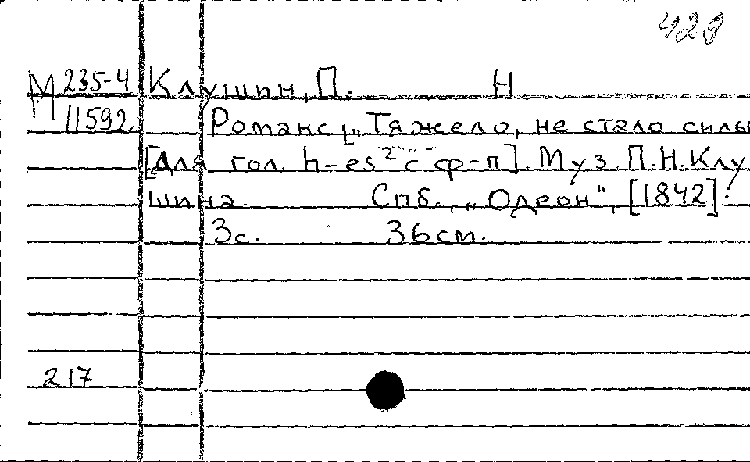 428
М 235-4 Клушин, П. Н
11592 Романс „Тяжело, не стало силы
[Для гол. h-es² с ф-п]. Муз. П.Н.Клу
шина Спб. „Одеон", [1842].
3с. 36см.
217